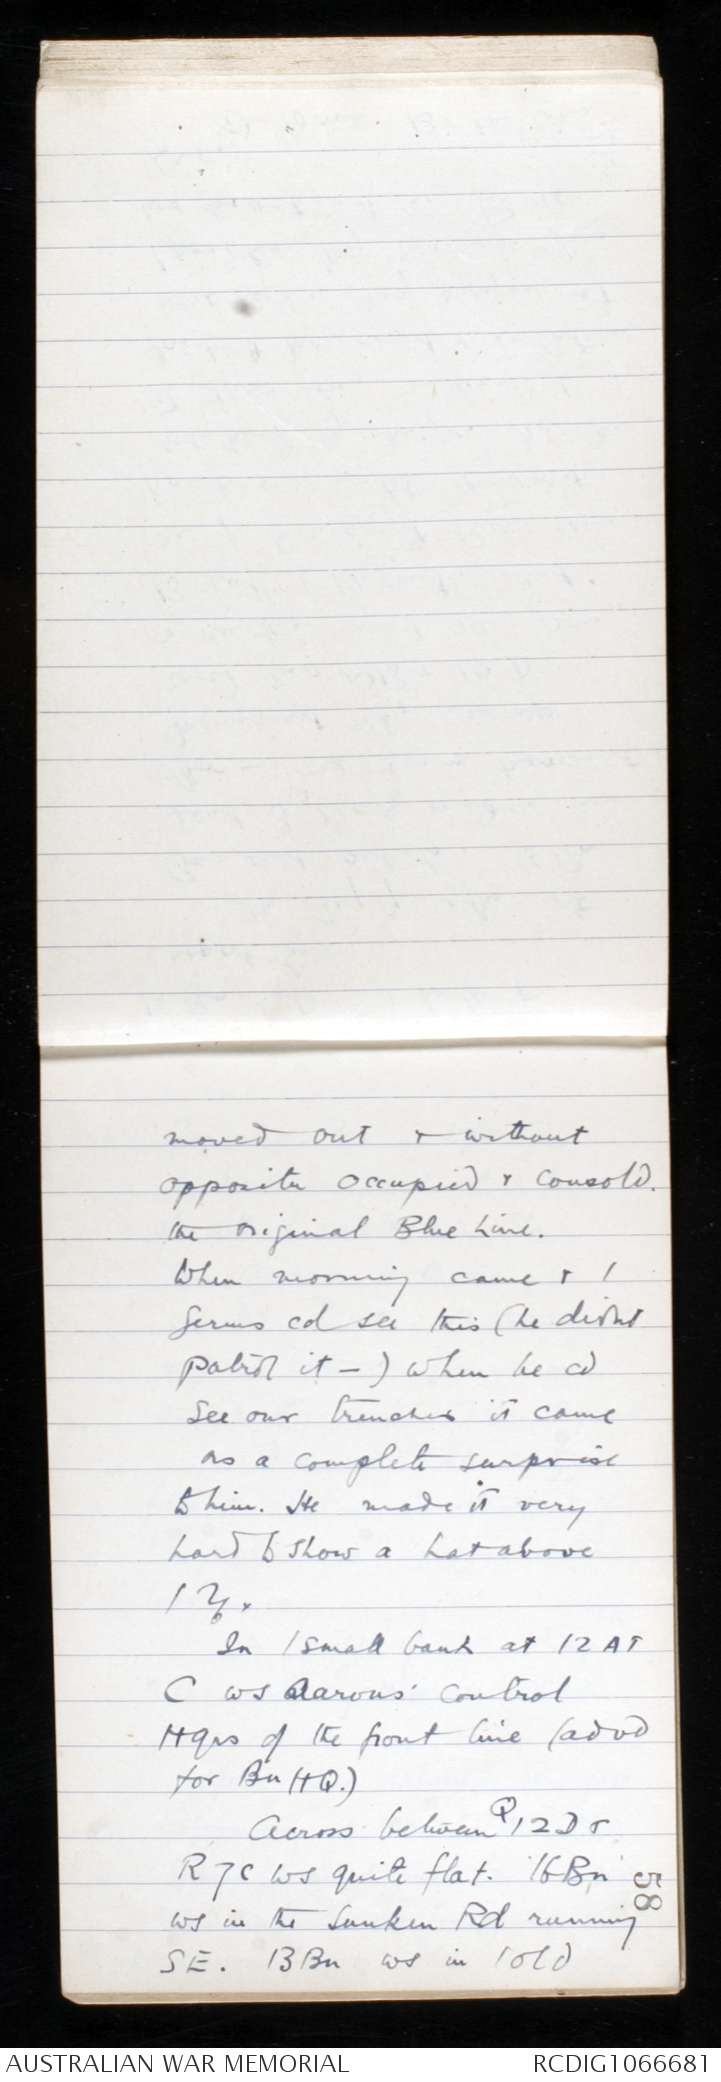 moved out & without
oppositn occupied & consold.
the original Blue Line.
When morning came & /
Germs cd see this (he didnt
patrol it —) when he cd
see our trenches it came
as a complete surprise
to him. He made it very
hard to show a hat above
/
In / small bank at 12 A 5
C ws Aarons' control
Hqrs of the front line (advd
for Bn HQ.)
Across between Q 12 D &
R 7 C ws quite flat. 16 Bn
ws in the Sunken Rd running
SE. 13 Bn ws in / old
58
AUSTRALIAN WAR MEMORIAL
RCDIG1066681